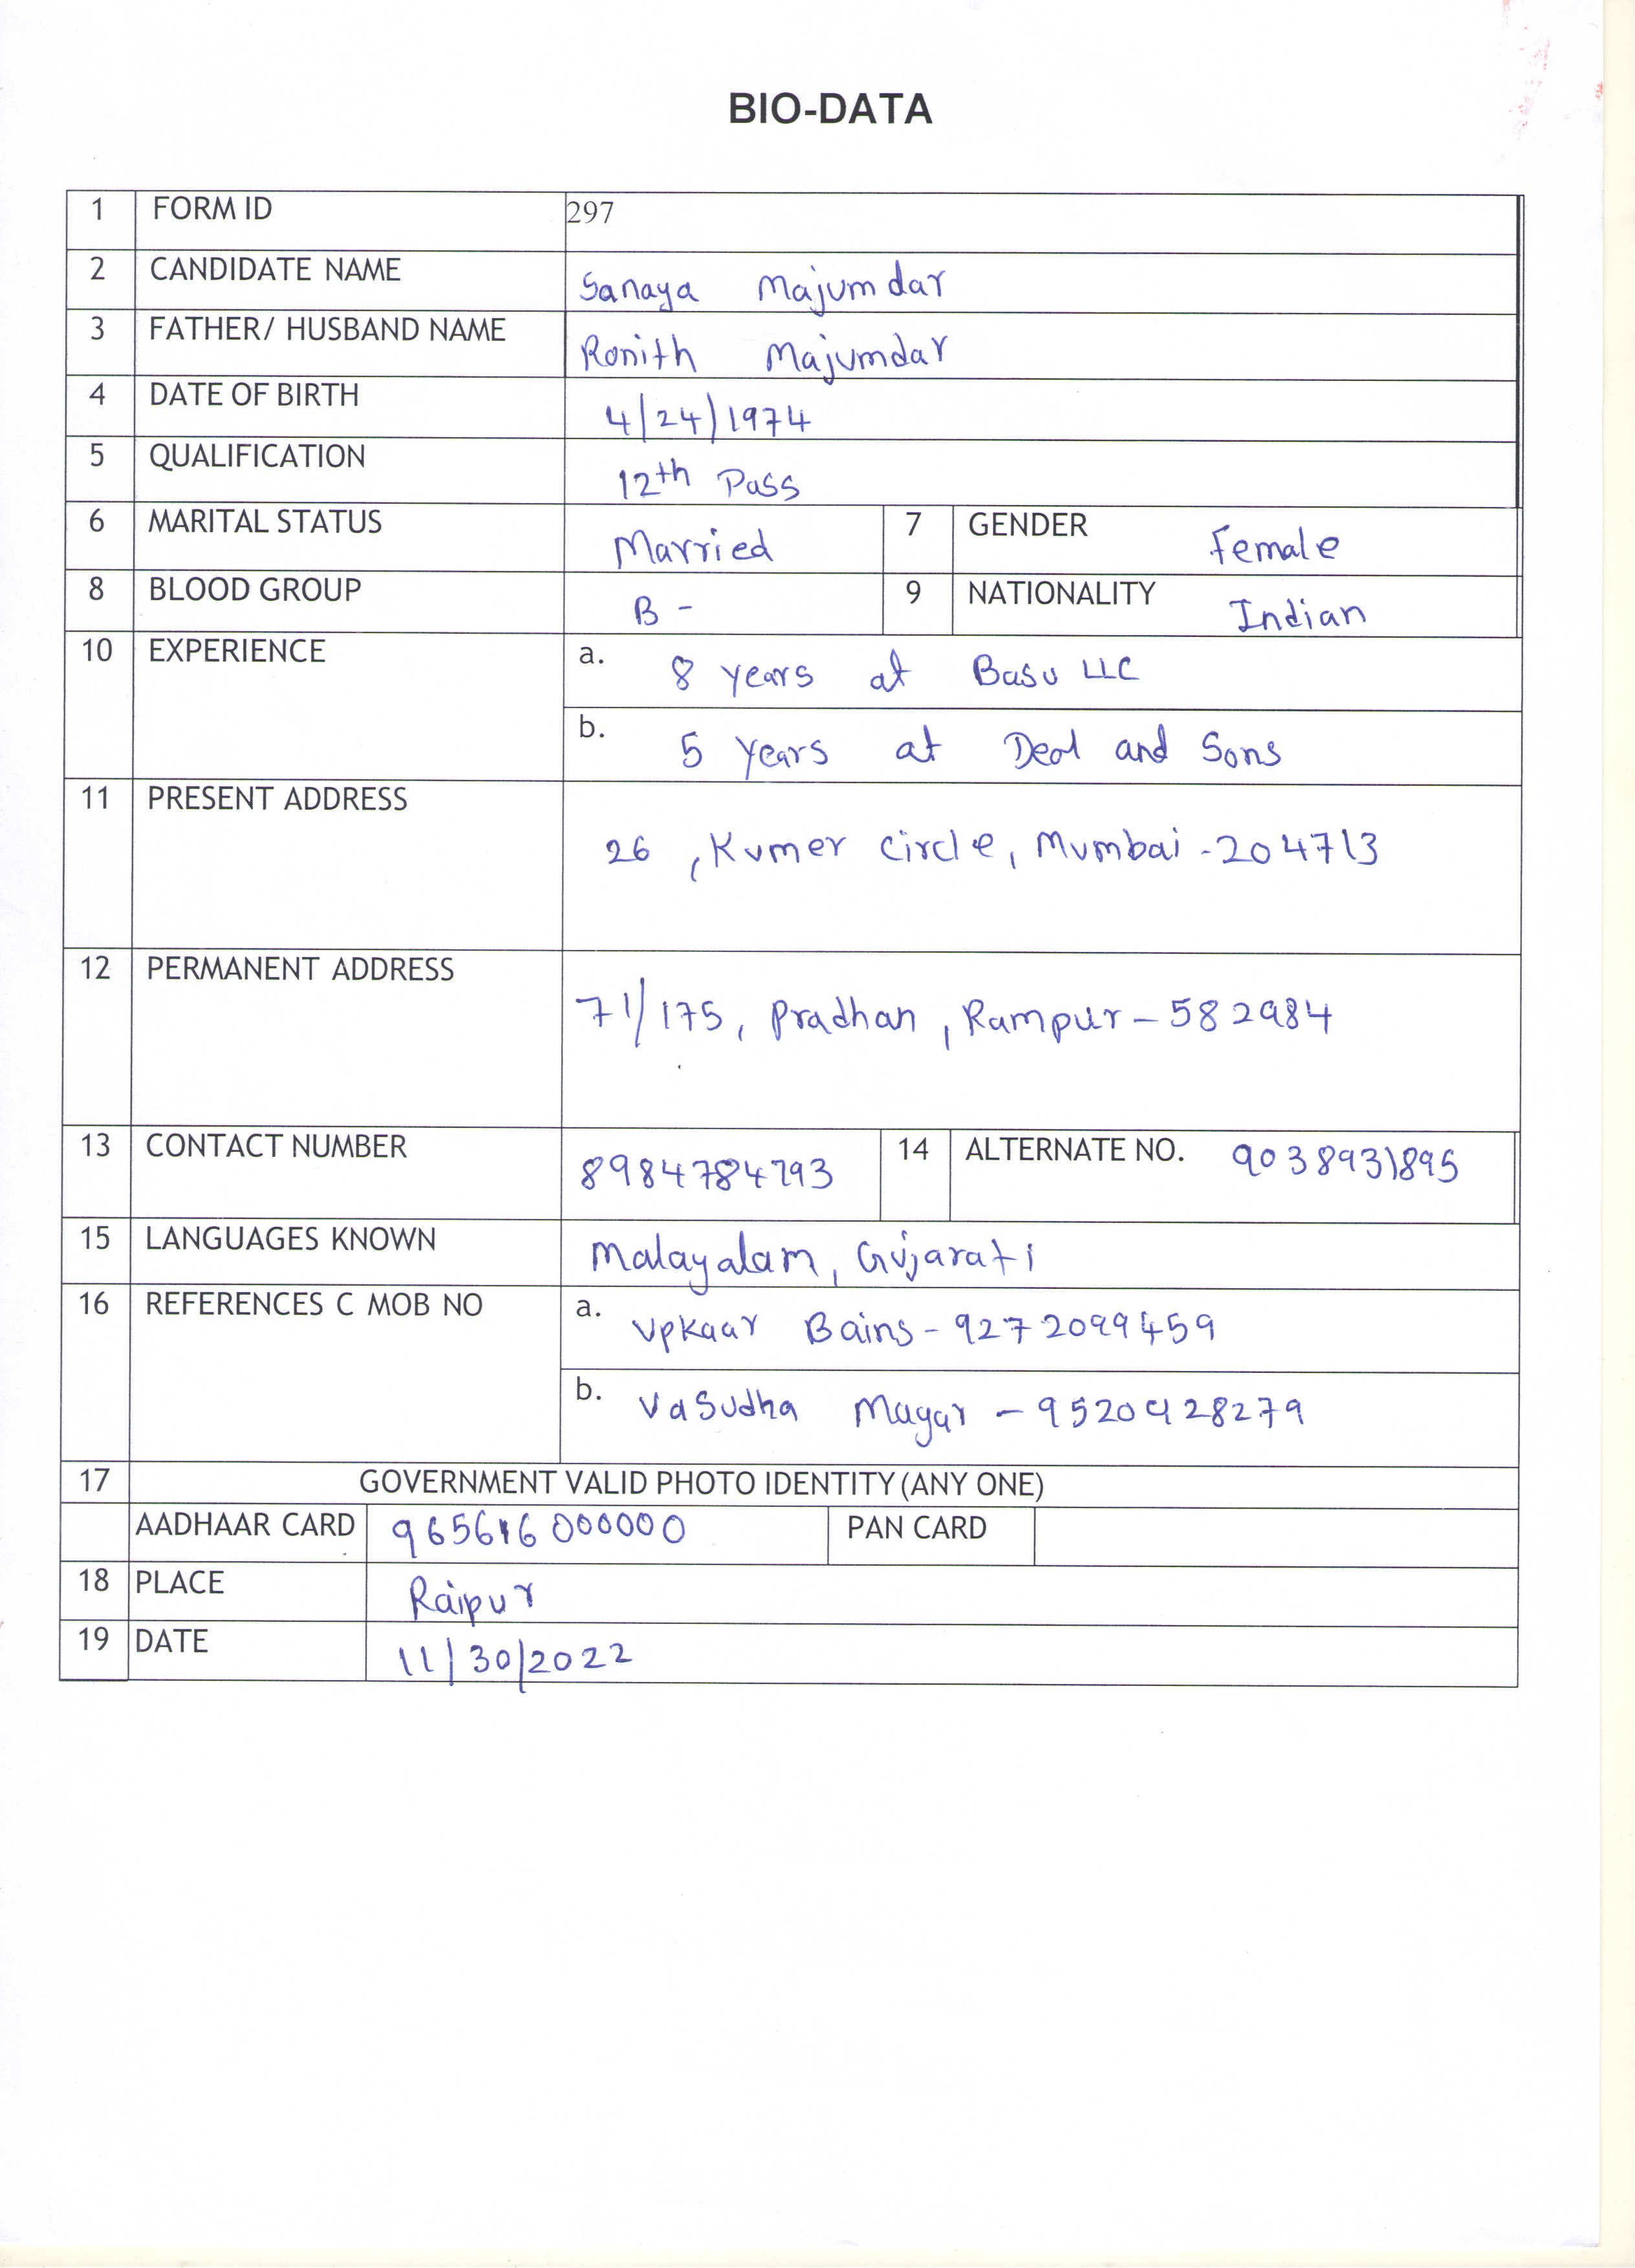 BIO-DATA
1 FORM ID 297
2 CANDIDATE NAME Sanaya Majumdar
3 FATHER/ HUSBAND NAME Ronith Majumdar
4 DATE OF BIRTH 4/24/1974
5 QUALIFICATION 12th Pass
6 MARITAL STATUS Married 7 GENDER Female
8 BLOOD GROUP B - 9 NATIONALITY Indian
10 EXPERIENCE a. 8 years at Basu LLC
b. 5 years at Deol and Sons
11 PRESENT ADDRESS
26, Kumer Circle, Mumbai - 204713
12 PERMANENT ADDRESS
71/175, Pradhan, Rampur - 582984
13 CONTACT NUMBER 8984784793 14 ALTERNATE NO. 9038931895
15 LANGUAGES KNOWN Malayalam, Gujarati
16 REFERENCES C MOB NO a. Upkaar Bains - 9272099459
b. Vasudha Magar - 9520928279
17 GOVERNMENT VALID PHOTO IDENTITY (ANY ONE)
AADHAAR CARD 965616000000 PAN CARD
18 PLACE Raipur
19 DATE 11/30/2022